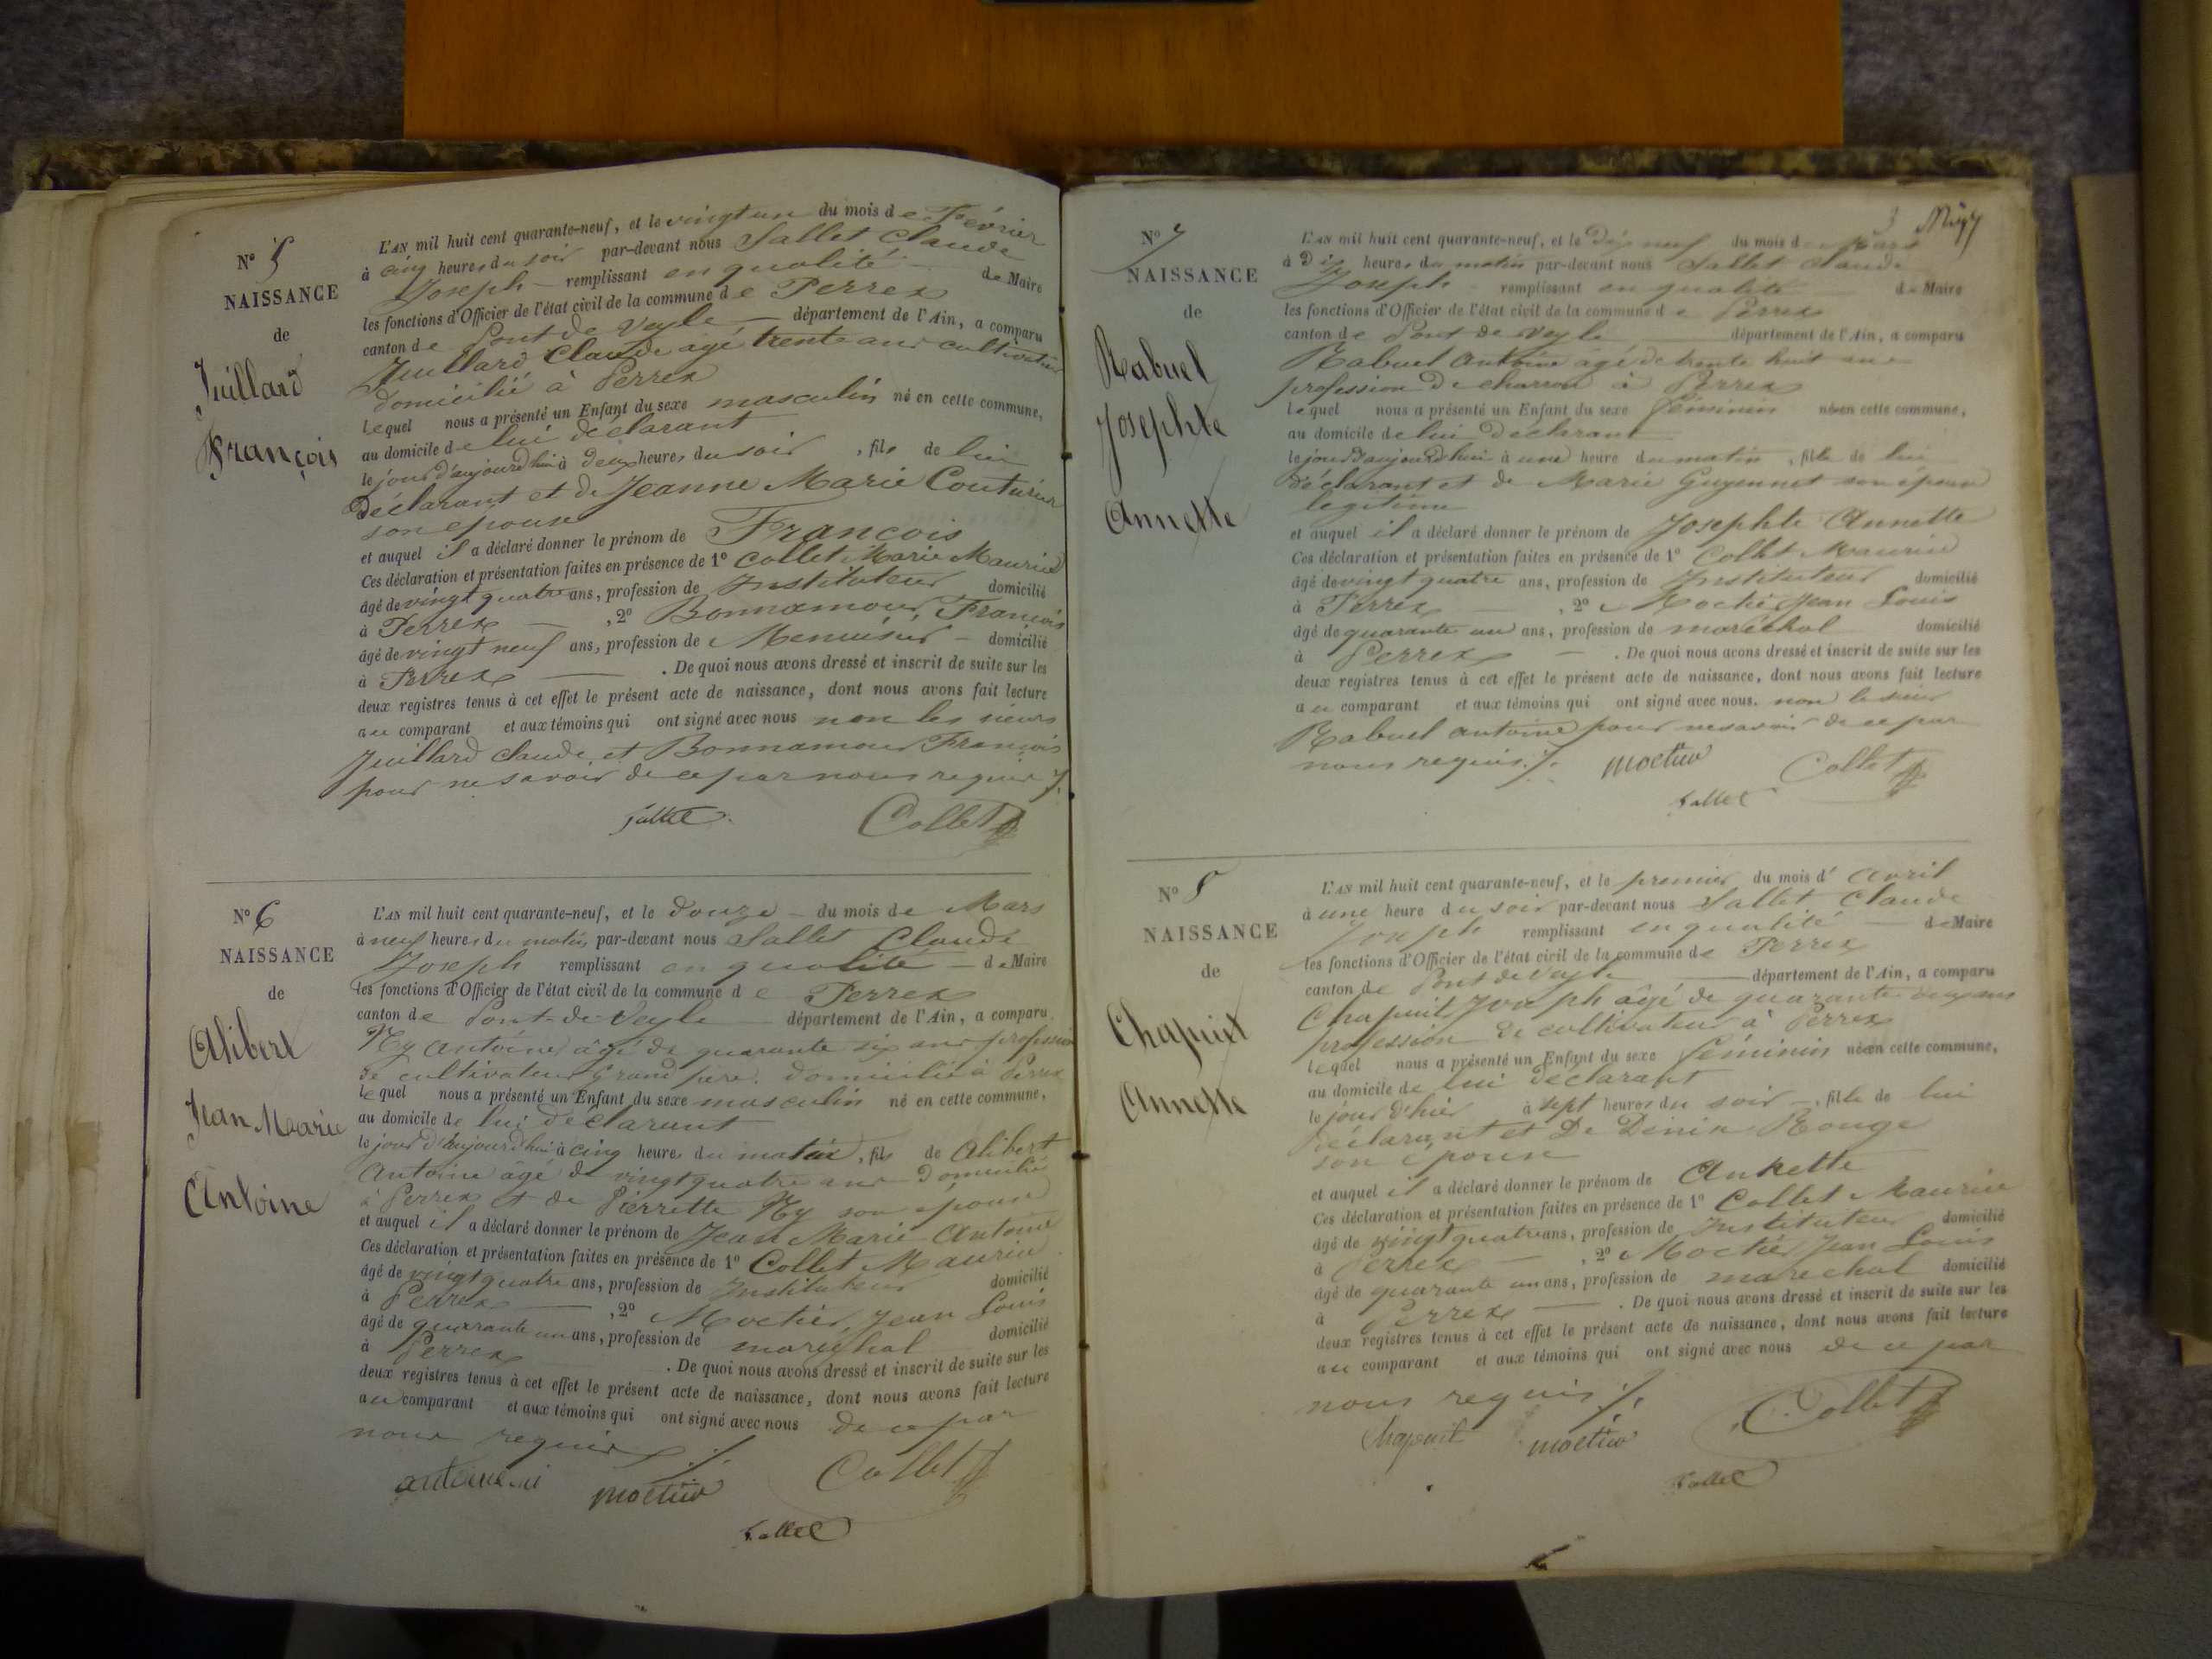 N° 5
NAISSANCE
de
Juillard
François
L'AN mil huit cent quarante-neuf, et le vingt un du mois de Février
à cinq heures du soir par-devant nous Sallet Claude
Joseph remplissant en qualité de Maire
les fonctions d'Officier de l'état civil de la commune de Perrex
canton de Pont de Veyle département de l'Ain, a comparu
Juillard Claude agé trente ans cultivateur
domicilié à Perrex
lequel nous a présenté un Enfant du sexe masculin né en cette commune,
au domicile de lui déclarant
le jour d'aujourd'hui à deux heures du soir, fils de lui
déclarant et de Jeanne Marie Couturier
son epouse
et auquel il a déclaré donner le prénom de François
Ces déclaration et présentation faites en présence de 1° Collet Marie Maurice
âgé de vingt quatre ans, profession de Instituteur domicilié
à Perrex, 2° Bonnamour François
âgé de vingt neuf ans, profession de Menuisier domicilié
à Perrex. De quoi nous avons dressé et inscrit de suite sur les
deux registres tenus à cet effet le présent acte de naissance, dont nous avons fait lecture
au comparant et aux témoins qui ont signé avec nous non les sieurs
Juillard Claude et Bonnamour François
pour ne savoir de ce par nous requis ./.
Sallet Collet
N° 6
NAISSANCE
de
Alibert
Jean Marie
Antoine
L'AN mil huit cent quarante-neuf, et le douze du mois de Mars
à neuf heures du matin par-devant nous Sallet Claude
Joseph remplissant en qualité de Maire
les fonctions d'Officier de l'état civil de la commune de Perrex
canton de Pont-de-Veyle département de l'Ain, a comparu
Ny Antoine âgé de quarante six ans profession
de cultivateur Grand père. domicilié à Perrex
lequel nous a présenté un Enfant du sexe masculin né en cette commune,
au domicile de lui déclarant
le jour d'aujourd'hui à cinq heures du matin, fils de Alibert
Antoine âgé de vingt quatre ans domicilié
à Perrex et de Pierrette Ny son épouse
et auquel il a déclaré donner le prénom de Jean Marie Antoine
Ces déclaration et présentation faites en présence de 1° Collet Maurice
âgé de vingt quatre ans, profession de Instituteur domicilié
à Perrex, 2° Moctier Jean Louis
âgé de quarante un ans, profession de maréchal domicilié
à Perrex. De quoi nous avons dressé et inscrit de suite sur les
deux registres tenus à cet effet le présent acte de naissance, dont nous avons fait lecture
au comparant et aux témoins qui ont signé avec nous de ce par
nous requis ./.
moctier Collet
Sallet
3
N° 7
NAISSANCE
de
Rabuel
Josephte
Annette
L'AN mil huit cent quarante-neuf, et le dix neuf du mois de Mars
à dix heures du matin par-devant nous Sallet Claude
Joseph remplissant en qualité de Maire
les fonctions d'Officier de l'état civil de la commune de Perrex
canton de Pont de Veyle département de l'Ain, a comparu
Rabuel Antoine agé de trente huit ans
profession de charron à Perrex
lequel nous a présenté un Enfant du sexe féminin né en cette commune,
au domicile de lui déclarant
le jour d'aujourd'hui à une heure du matin, fille de lui
déclarant et de Marie Guyennet son épouse
legitime
et auquel il a déclaré donner le prénom de Josephte Annette
Ces déclaration et présentation faites en présence de 1° Collet Maurice
âgé de vingt quatre ans, profession de Instituteur domicilié
à Perrex, 2° Moctier Jean Louis
âgé de quarante un ans, profession de maréchal domicilié
à Perrex. De quoi nous avons dressé et inscrit de suite sur les
deux registres tenus à cet effet le présent acte de naissance, dont nous avons fait lecture
au comparant et aux témoins qui ont signé avec nous. non le sieur
Rabuel antoine pour ne savoir de ce par
nous requis ./. moctier Collet
Sallet
N° 8
NAISSANCE
de
Chapuit
Annette
L'AN mil huit cent quarante-neuf, et le premier du mois d'Avril
à une heure du soir par-devant nous Sallet Claude
Joseph remplissant en qualité de Maire
les fonctions d'Officier de l'état civil de la commune de Perrex
canton de Pont de Veyle département de l'Ain, a comparu
Chapuit Joseph âgé de quarante deux ans
profession de cultivateur à Perrex
lequel nous a présenté un Enfant du sexe féminin né en cette commune,
au domicile de lui déclarant
le jour d'hier à sept heures du soir, fille de lui
déclarant et De Rouge
son épouse
et auquel il a déclaré donner le prénom de Annette
Ces déclaration et présentation faites en présence de 1° Collet Maurice
âgé de vingt quatre ans, profession de Instituteur domicilié
à Perrex, 2° Moctier Jean Louis
âgé de quarante un ans, profession de marechal domicilié
à Perrex. De quoi nous avons dressé et inscrit de suite sur les
deux registres tenus à cet effet le présent acte de naissance, dont nous avons fait lecture
au comparant et aux témoins qui ont signé avec nous de ce par
nous requis ./.
Chapuit moctier Collet
Sallet